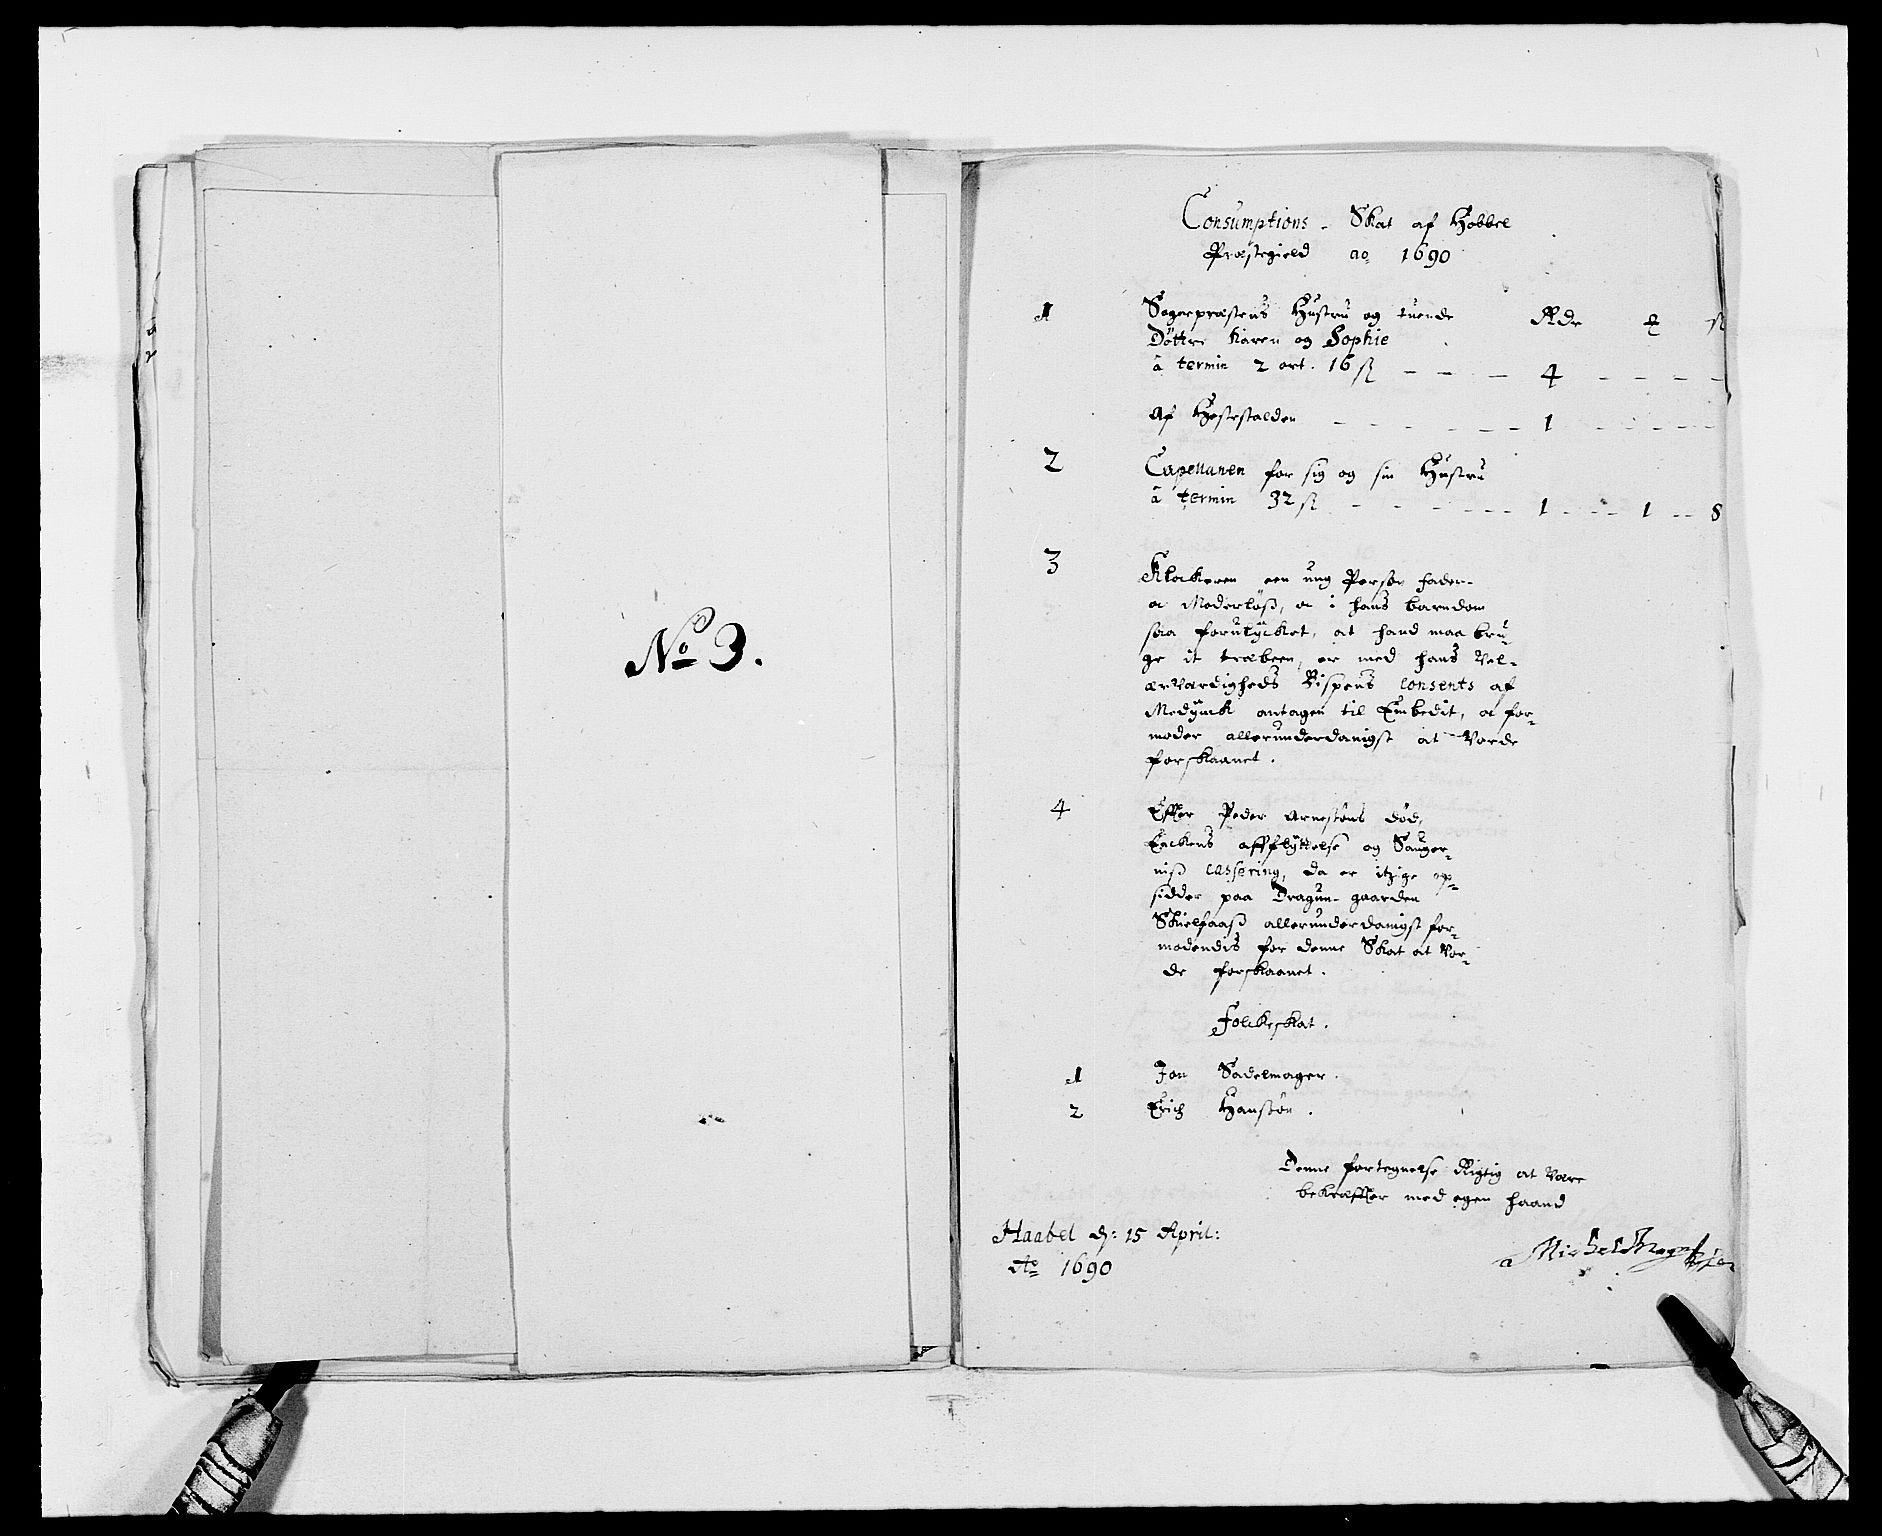 No 3.
Consumptions - Skat af Hobbel
Præstegield ao 1690
1 Sognepræstens Hustru og tuende Rdr ſſ
Döttre Karen og Sophie
à termin 2 ort. 16 ſſ - - - 4 - - - -
Af Hestestalden - - - - - - - 1 - - - - -
2 Capellanen for sig og sin Hustru
à termin 32 ſſ - - - - - - 1 - - - 1 - - 8
3 Klockeren een ung Person fader-
oc Moderlöß, oc i hans barndom
saa forulÿcket, at hand maa bru-
ge it træbeen, er med hans Vel-
ærværdigheds Bispens consents af
Medÿnck antagen til Embedit, oc for-
moder allerunderdanigst at Vorde
forskaanet.
4 Effter Peder Arnesöns död,
Enckens affflÿttelse og
cassering, da er itzige op-
sidder paa Dragun-gaarden
allerunderdanigst for-
modendis for denne Skat at Vor-
de forskaanet.
Folckeskat.
1 Jon Sadelmager.
2 Erich Hansön.
Denne fortegnelse Rigtig at Være
bekræffter med egen haand
Haabel d: 15 April:
Ao 1690